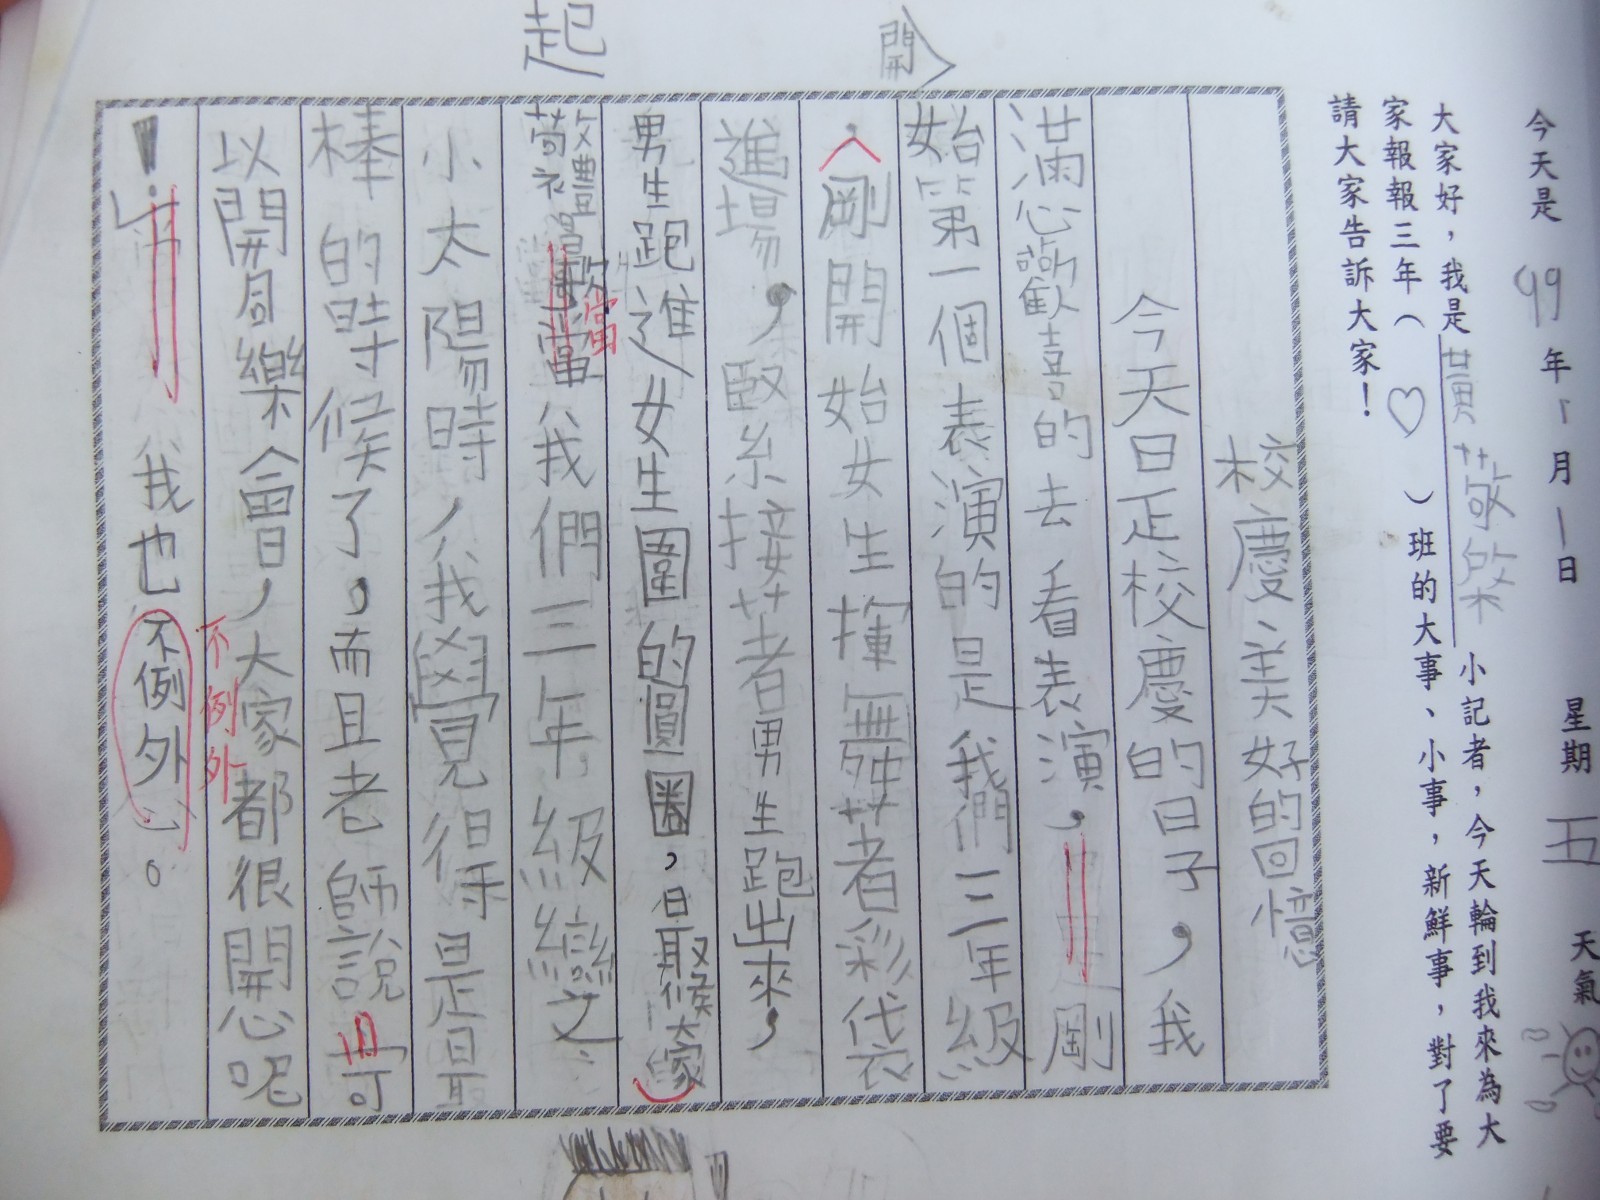 今天是 99 年 1 月 一日 星期 五 天氣
大家好，我是 黃敬棨 小記者，今天輪到我來為大
家報報三年（ ♡ ）班的大事、小事，新鮮事，對了要
請大家告訴大家！
校慶美好的回憶
今天日正校慶的日子，我
滿心歡喜的去看表演，剛
開
始第一個表演的是我們三年級
，剛開始女生揮舞著彩帶
進場，緊接著男生跑出來，
男生跑進女生圍的圓圈，最候大家
起
敬禮 當我們三年級變
小太陽時，我覺得是最
棒的時候了，而且老師說可
以開同樂會，大家都很開心呢
！ 我也不例外。
當
不例外